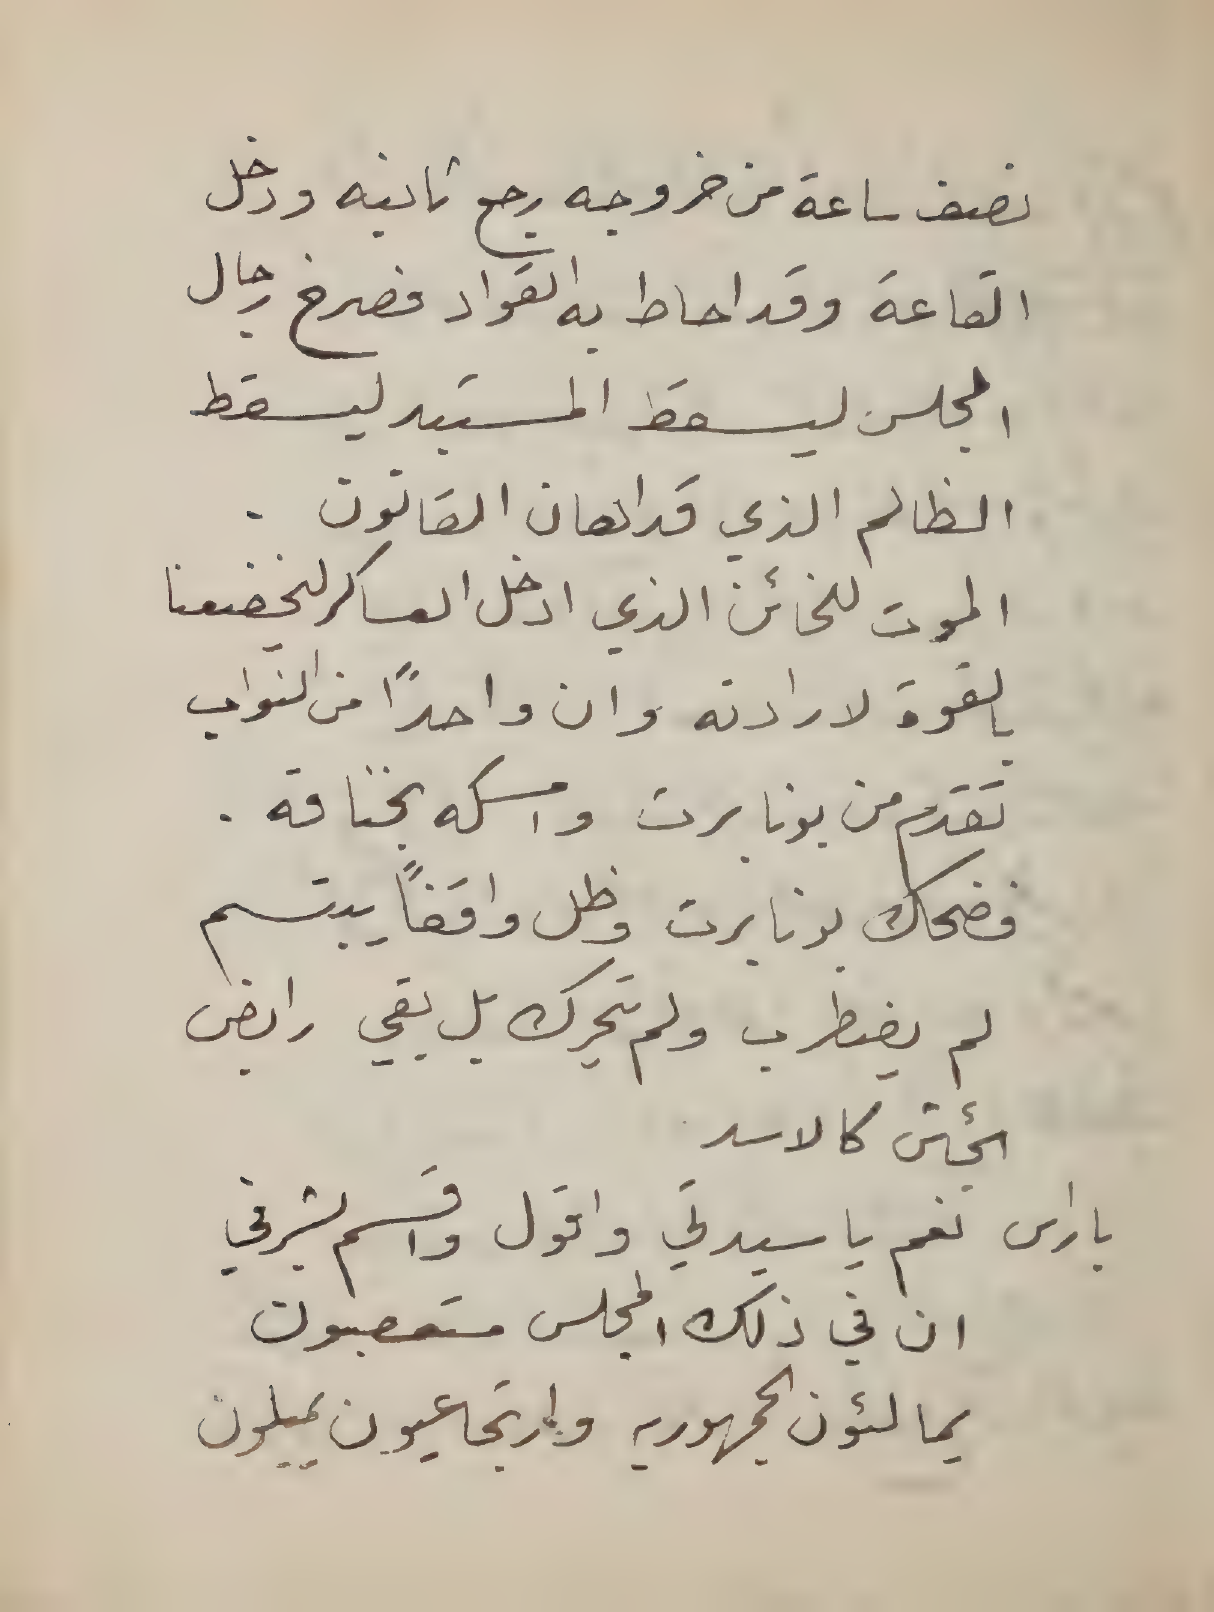 نصف ساعة من خروجه رجع ثانيه ودخل
القاعة وقد احاط به القواد فصرخ رجال
المجلس ليسقط المستبد ليسقط
الظالم الذي قد اهان القانون .
الموت للخائن الذي ادخل العساكر ليخضعنا
بالقوة لارادته وان واحدًا من النواب
تقدم من بونابرت وامسكه بخناقه .
فضحك بونابرت وظل واقفاً يبتسم
لم يضطرب ولم يتحرك بل بقي رابض
الجئش كالاسد
باراس نعم يا سيدتي واقول واقسم بشرفي
ان في ذلك المجلس متعصبون
يمالئون الجمهوريه وارتجاعيون يميلون